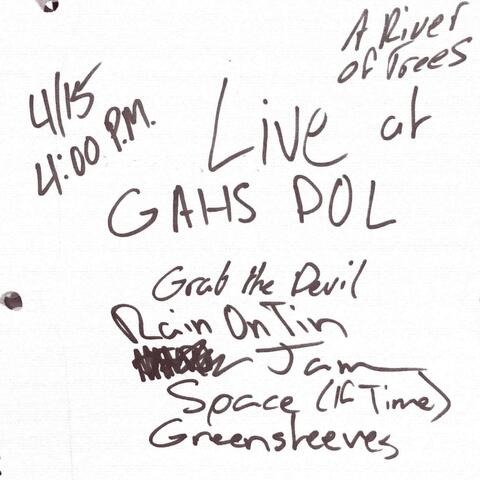 A River
of Trees
4/15
4:00 P.M.
Live at
GAHS POL
Grab the Devil
Rain On Tin
Jam
Space (If Time)
Greensleeves